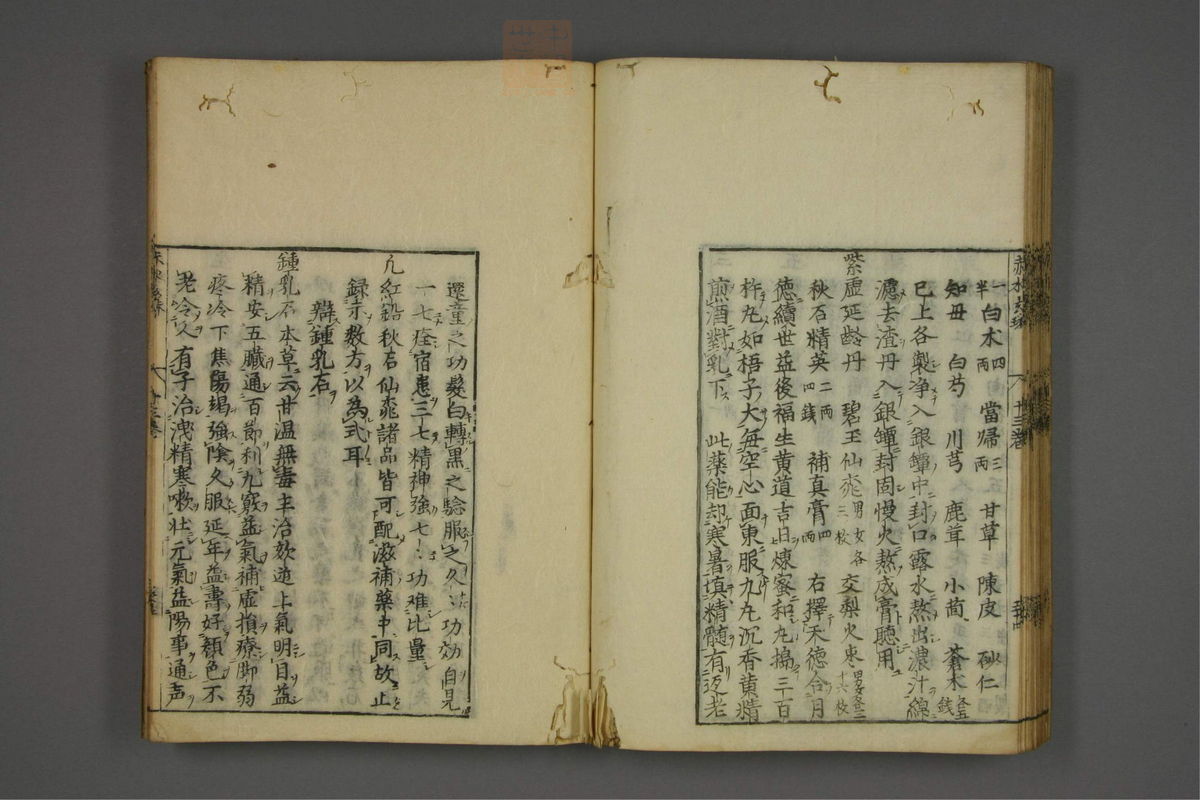 赤水玄珠 十三卷
一半白术四両 當帰三両 甘草 陳皮 砂仁
知毋 白芍 川芎 鹿茸 小茴 蒼术各五銭
已上各製浄入銀罈中封口露水熬出濃汁綿
濾去渣丹入銀罈封固慢火熬成膏聴用
紫虚延齢丹 碧玉仙桃男女各三枚 交梨火枣
秋石精英二両四銭 補真膏四両 右擇天徳合月
徳續世益後福生黄道吉日煉蜜和丸搗三百
杵丸如梧子大每空心面東服九丸沉香黄精
煎酒對乳下 此薬能却寒暑填精髓有返老
還童之功髮白轉黒之驗服之久〻功効自見
一七痊宿患三七精神強七〻功难比量
凢紅鉛秋石仙桃諸品皆可配滋補薬中同故止
録示数方以為式耳
辯鍾乳石
鍾乳石本草云甘温無毒主治欬逆上氣明目益
精安五臓通百節利九竅益氣補虚損療脚弱
疼冷下焦傷竭強陰久服延年益壽好顔色不
老令人有子治洩精寒嗽壮元氣益陽事通声